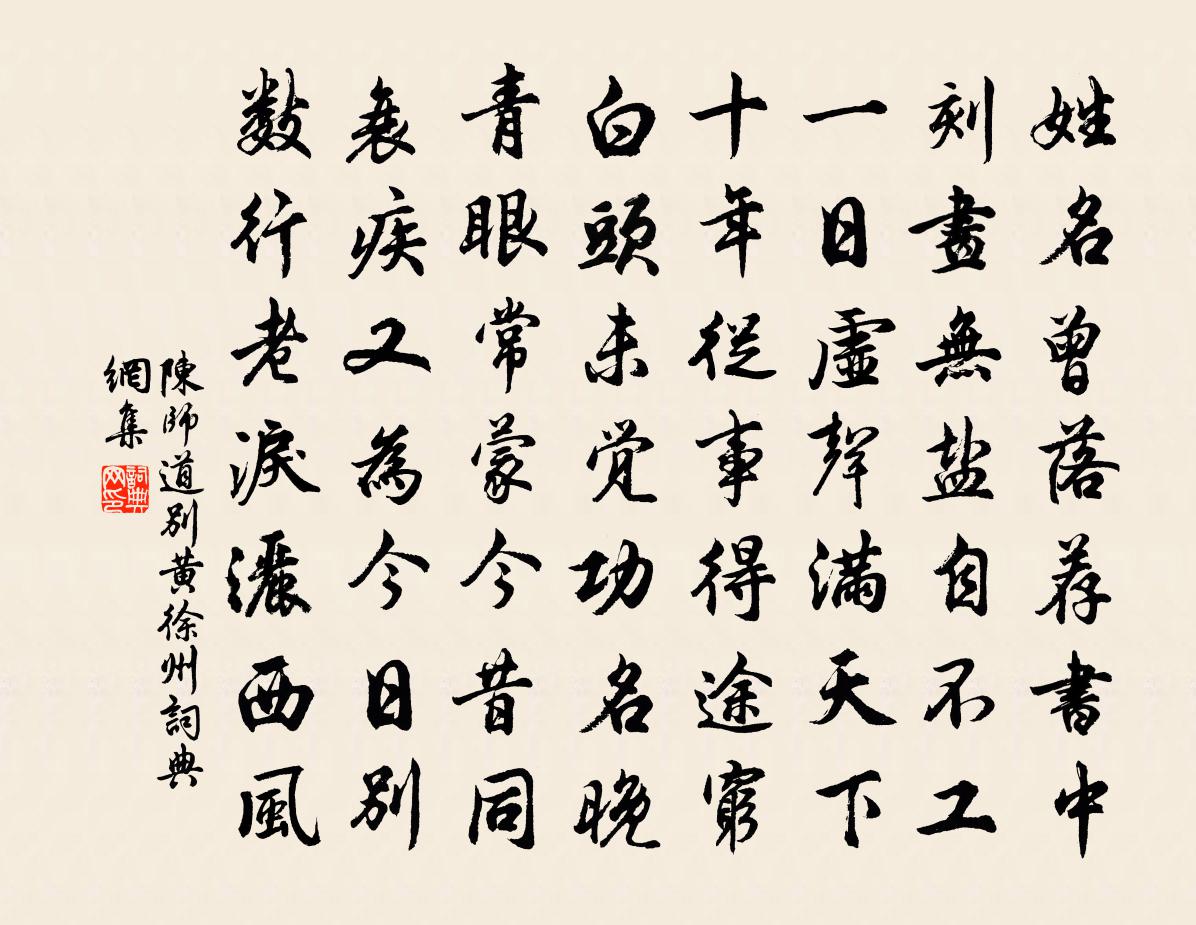 姓名曾落荐書中
刻畫無盐自不工
一日虛聲滿天下
十年從事得途窮
白頭未觉功名晚
青眼常蒙今昔同
衰疾又為今日別
数行老淚灑西風
陳師道別黄徐州詞典
網集
詞典
网印